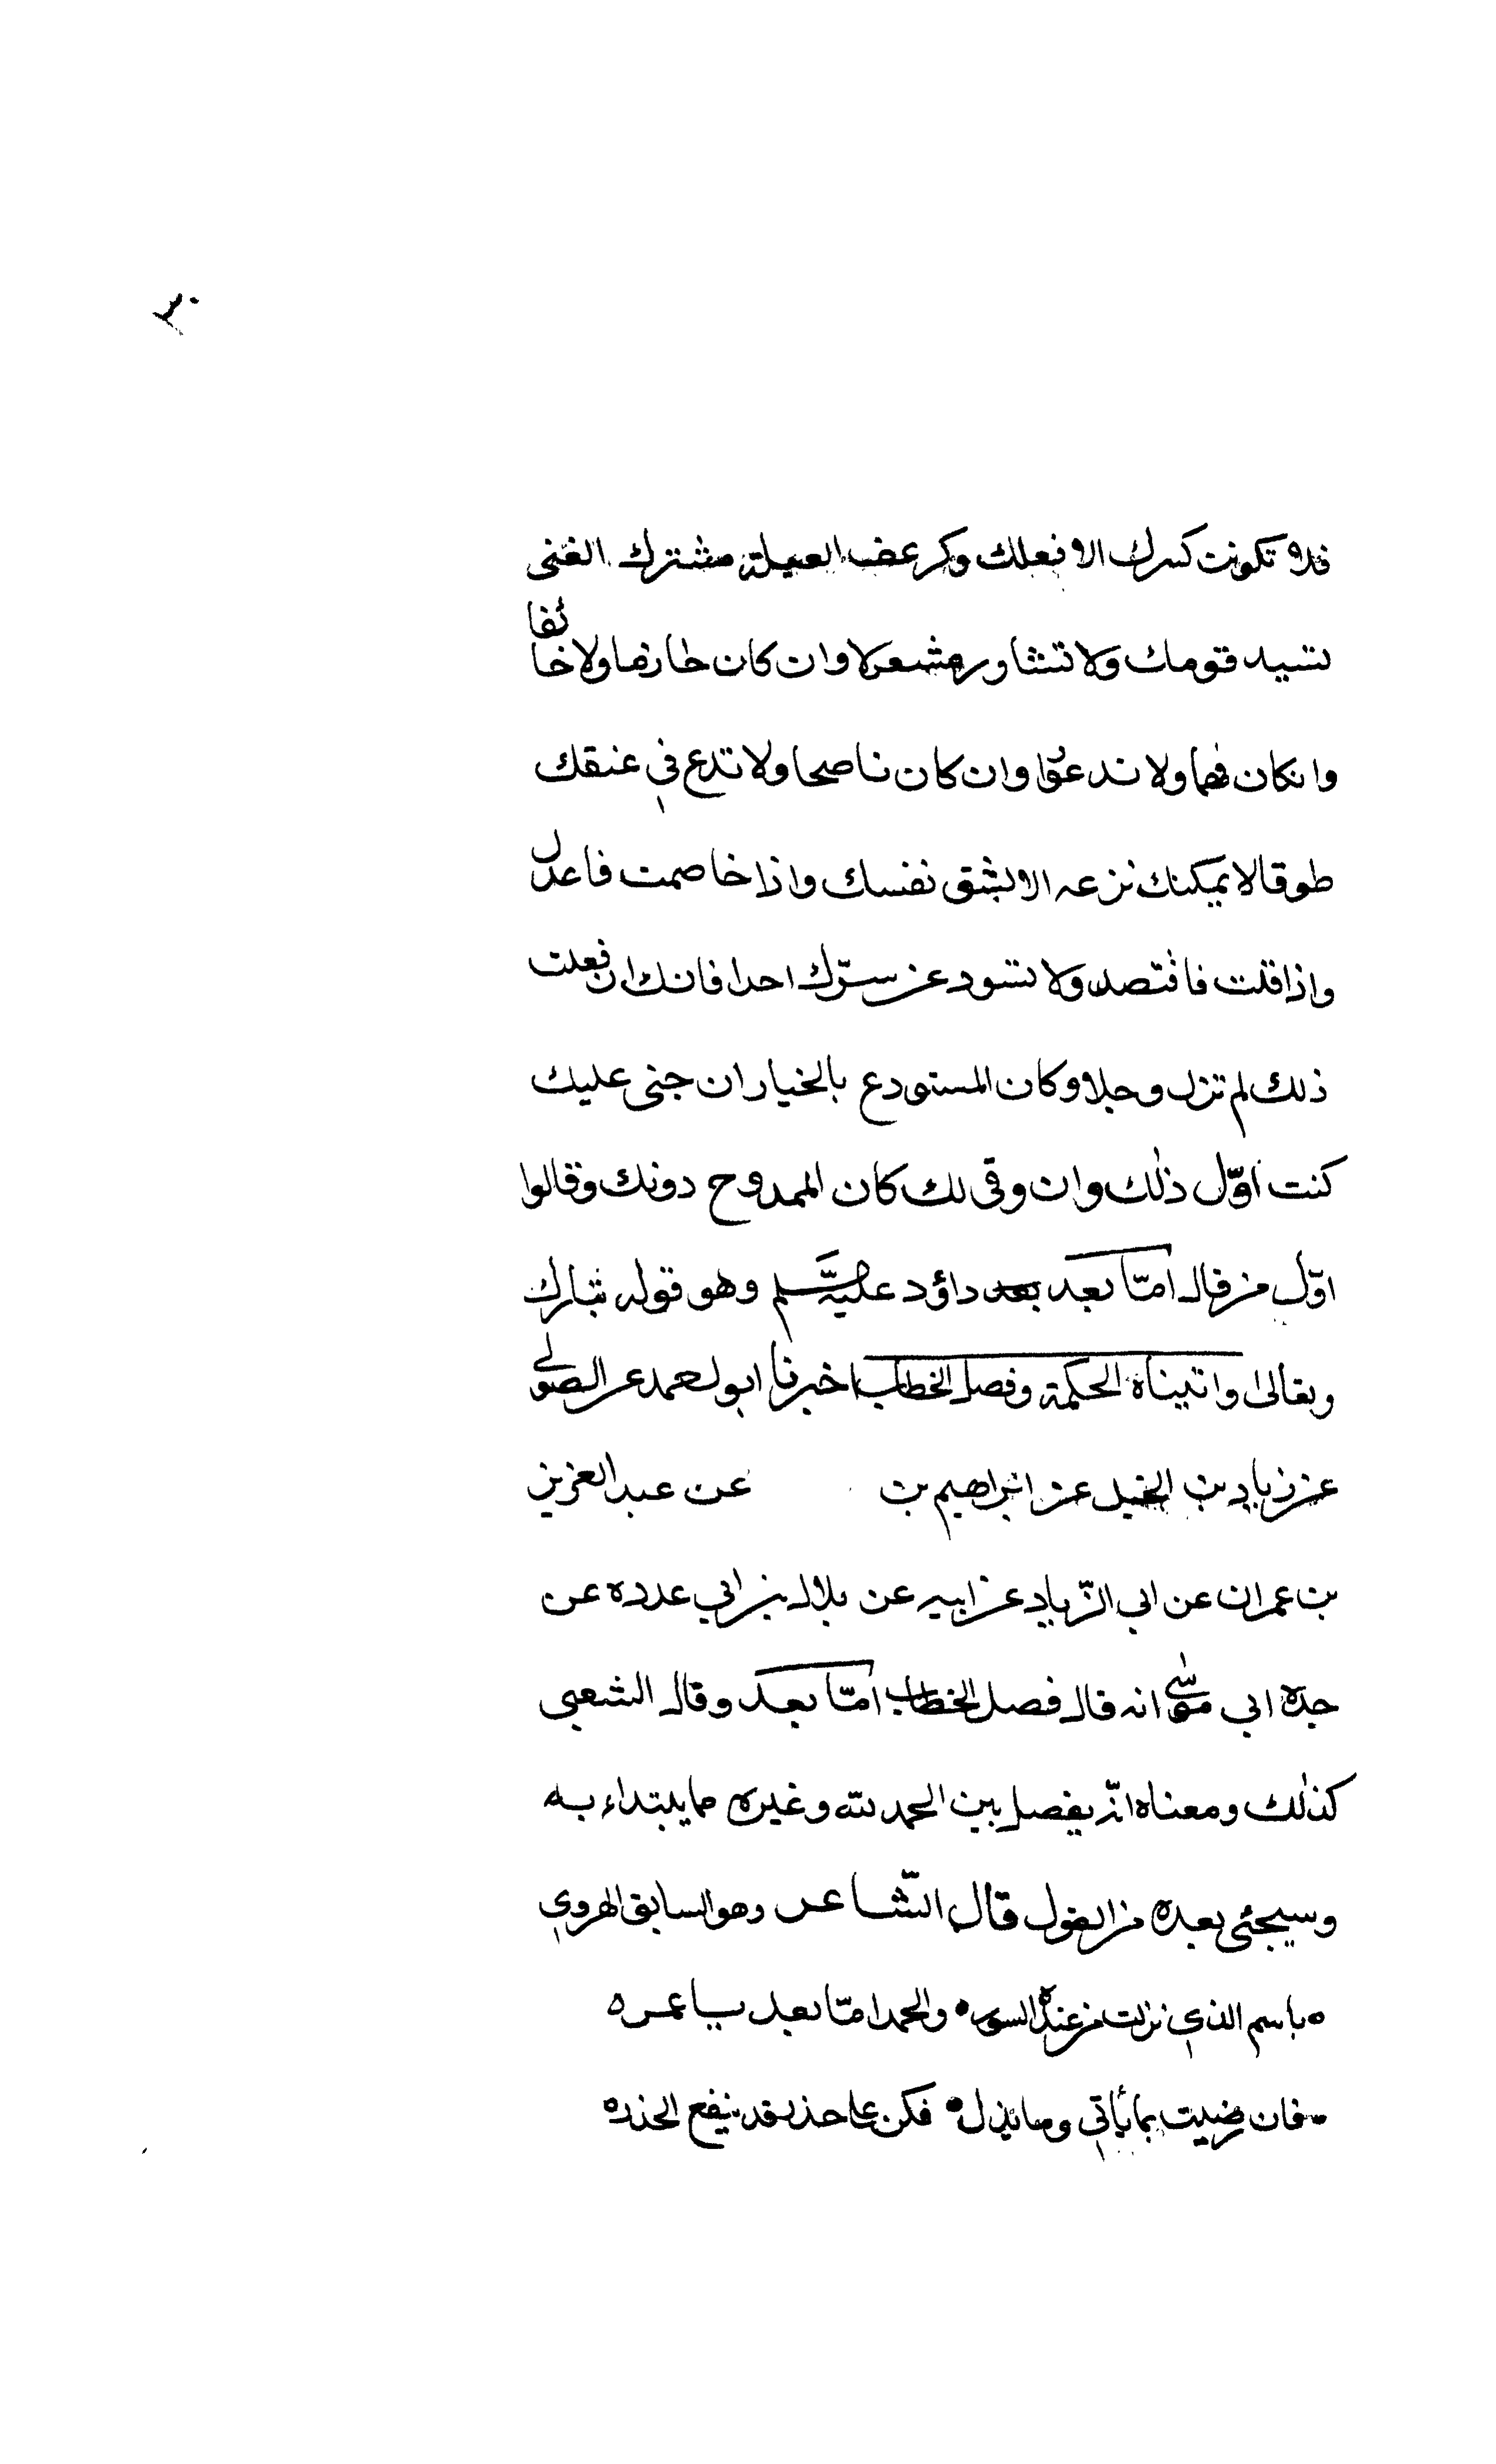 ٢٠
فلا تكونن كسرك الا فعلك وكن عف العيلة مشترك الغنى
تسيد قومك ولا تشاور مشعولا وان كان حازما ولا خائفا
وانكان فهما ولا تدعوا وان كان ناصحا ولا تدع في عنقك
طوقا لا يمكنك نزعه الا بشق نفسك واذا خاصمت فاعدل
واذا قلت فاقتصد ولا تسود عن سرّك احدا فانك ان فعلت
ذلك لم تزل وجلا وكان المستودع بالخيار ان جنى عليك
كنت اوّل ذلك وان وفى لك كان الممدوح دونك وقالوا
اوّل من قال امّا بعد بعد داؤد عليه السلم وهو قوله تبارك
وتعالى واتيناه الحكمة وفصل الخطاب اخبرنا ابو احمد عن الصولي
عن زياد بن الخليل عن ابراهيم بن عن عبد العزيز
بن عمران عن ابي الزّياد عن ابيه عن بلال بن ابي عدده عن
جده ابي موسى انه قال فصل الخطاب امّا بعد وقال الشعبي
كذلك ومعناه انّه يفصل بين الحمد لله وغيره مما يبتداء به
وسيجئى بعده من القول قال الشّاعر وهو السابق الهروي
ه باسم الذي نزلت من عنده السور ه والحمد امّا بعد يا عمر ه
فان رضيت بما يأتي وما يذل ه فكن على حذر قد ينفع الحذر ه